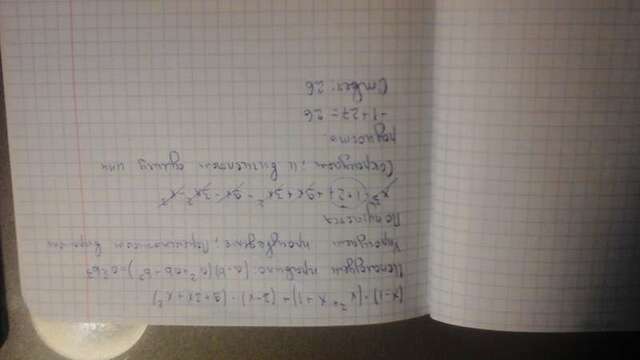 (x-1)·(x²+x+1)+(3-x)·(9+3x+x²)
Используем правило: (a-b)(a²+ab+b²)=a³b³
Упрощаем произведение, Перемножаем выражен
Получится
x³-1+27+9x+3x²-9x-3x²-x³
Сокращаем, и вычисляем сумму или
разность.
-1+27=26
Ответ: 26